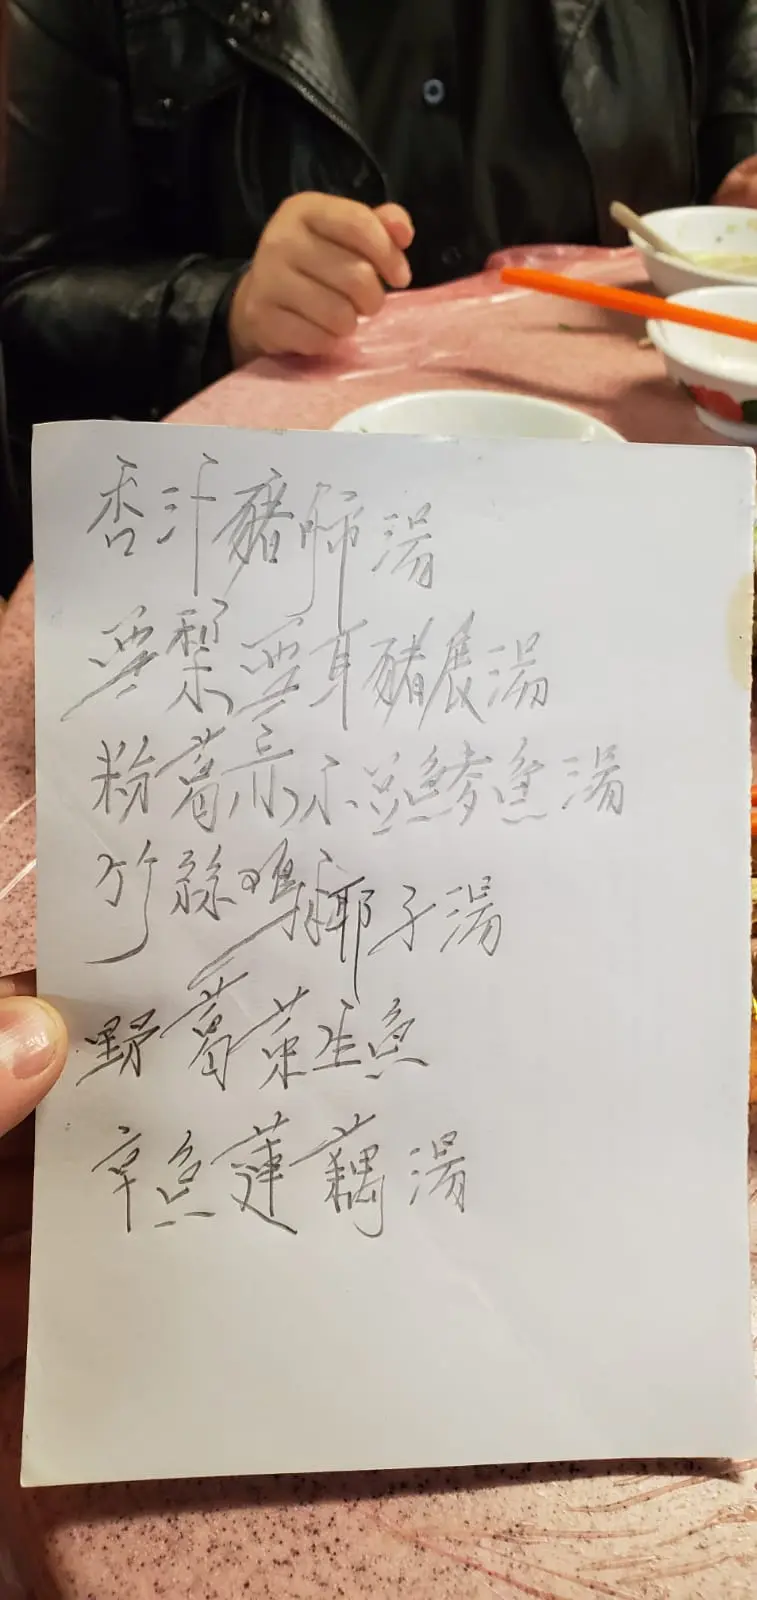 杏汁豬肺湯
雪梨雪耳豬𦟌湯
粉葛赤小豆鯪魚湯
竹絲鷄椰子湯
野葛菜生魚
章魚蓮藕湯